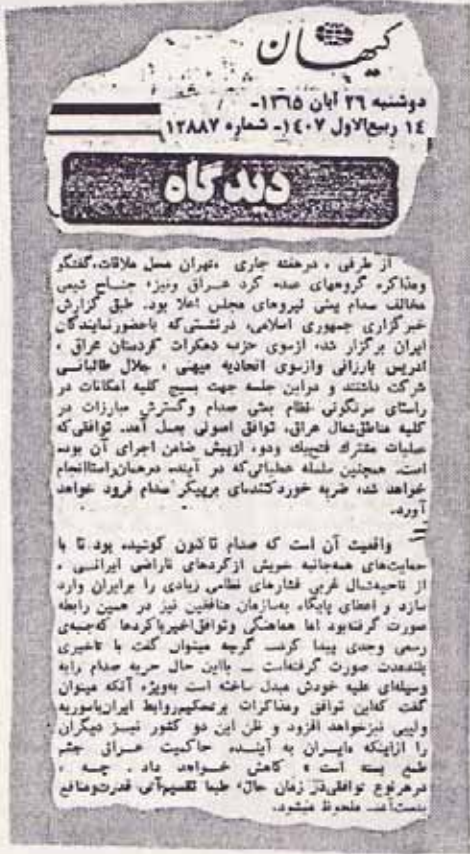 کیهان
دوشنبه ۲۶ آبان ۱۳۶۵-
۱۴ ربیع‌الاول ۱۴۰۷- شماره ۱۲۸۸۷
دیدگاه
از طرفی ، درهفته جاری ، تهران محل ملاقات، گفتگو
ومذاکره گروههای عمده کرد عراق ونیز جناح شیعی
مخالف صدام یعنی نیروهای مجلس اعلا بود. طبق گزارش
خبرگزاری جمهوری اسلامی، درنشستی‌که باحضورنمایندگان
ایران برگزار شد، ازسوی حزب دمکرات کردستان عراق ،
ادریس بارزانی وازسوی اتحادیه میهنی ، جلال طالبانی
شرکت داشتند و دراین جلسه جهت بسیج کلیه امکانات در
راستای سرنگونی نظام بعثی صدام وگسترش مبارزات در
کلیه مناطق‌شمال عراق، توافق اصولی بعمل آمد. توافقی‌که
عملیات مشترک فتح‌یک ودو، ازپیش ضامن اجرای آن بوده
است. همچنین سلسله عملیاتی‌که در آینده درهمان‌راستاانجام
خواهد شد، ضربه خوردکننده‌ای برپیکر صدام فرود خواهد
آورد.
واقعیت آن است که صدام تاکنون کوشیده بود تا با
حمایت‌های همه‌جانبه خویش ازکردهای ناراضی ایرانی ،
از ناحیه‌شمال غربی فشارهای نظامی زیادی را برایران وارد
سازد و اعطای پایگاه بسازمان منافقین نیز در همین رابطه
صورت گرفته‌بود اما هماهنگی وتوافق‌اخیرباکردها که‌جنبه‌ی
رسمی وجدی پیدا کرد، گرچه میتوان گفت با تاخیری
بلندمدت صورت گرفته‌است — بااین حال حربه صدام رابه
وسیله‌ای علیه خودش مبدل ساخته است به‌ویژه آنکه میتوان
گفت که‌این توافق ومذاکرات برتحکیم‌روابط ایران‌باسوریه
ولیبی نیزخواهد افزود و ظن این دو کشور نیز دیگران
را ازاینکه «ایران به آینده حاکمیت عراق چشم
طمع بسته است » کاهش خواهد داد . چه ،
درهرنوع توافقی‌در زمان حال، طبعا تقسیم‌آتی قدرت‌ومنافع
بدست‌آمده ملحوظ میشود.